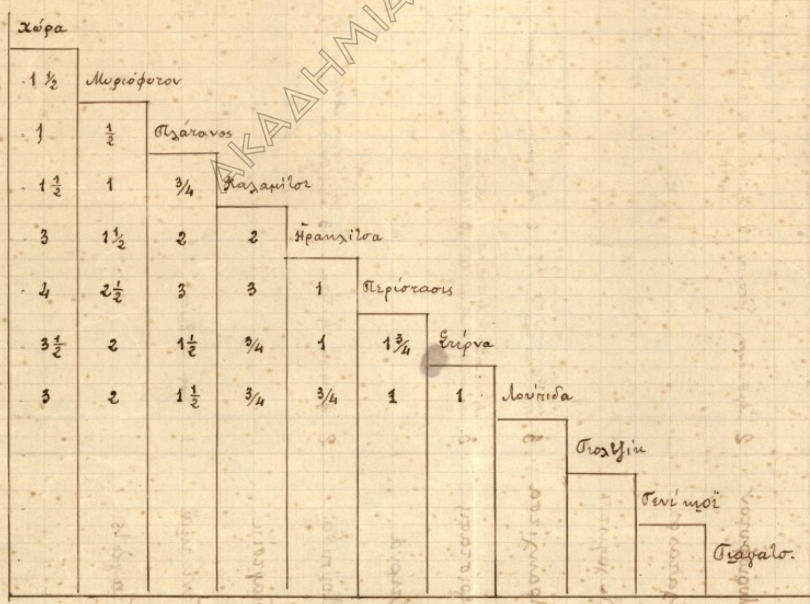 Χώρα
1 ½ Μυριόφυτον
1 ½ Πλάτανος
1 ½ 1 ¾ Καλαμίτσι
3 1 ½ 2 2 Ηρακλίτσα
4 2 ½ 3 3 1 Περίστασις
3 ½ 2 1 ½ ¾ 1 1 ¾ Στέρνα
3 2 1 ½ ¾ ¾ 1 1 Λούπιδα
Γενί κιοϊ
ΑΚΑΔΗΜΙΑ